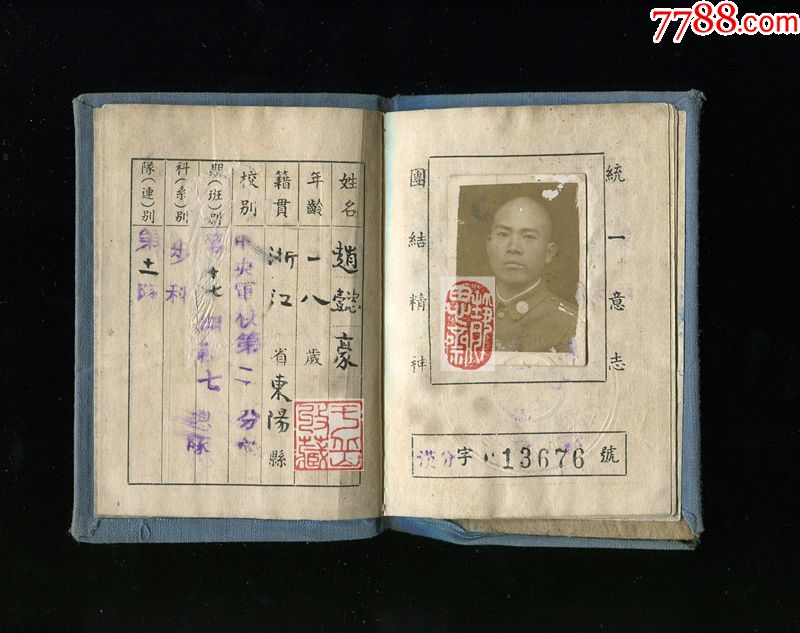 7788.com
統一意志
團結精神
漢分字第13676號
姓名 趙懿豪
年齡 一八歲
籍貫 浙江省東陽縣
校別 中央軍校第二分校
期(班)別 第十七期第七總隊
科(系)別 步科
隊(連)別 第十一隊